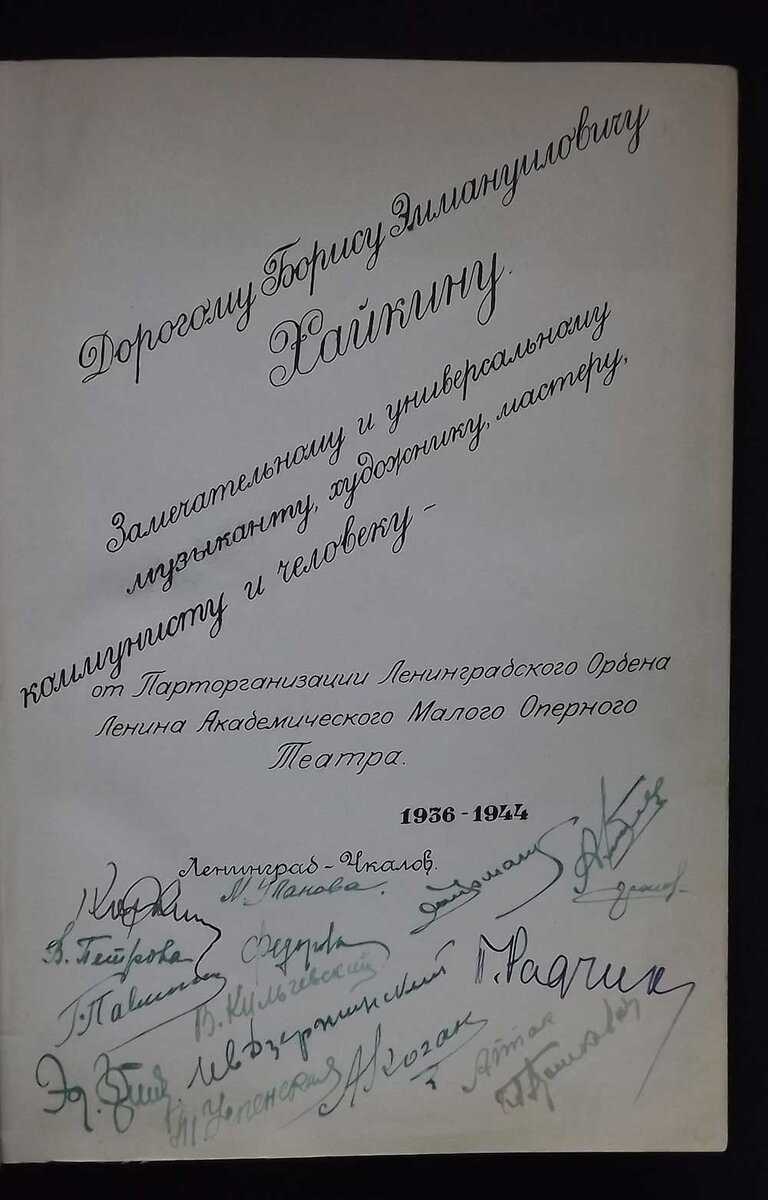 Дорогому Борису Эммануиловичу
Хайкину.
Замечательному и универсальному
музыканту, художнику, мастеру,
коммунисту и человеку -
от Парторганизации Ленинградского Ордена
Ленина Академического Малого Оперного
Театра.
1936-1944
Ленинград-Чкалов.
М Упанова.
В. Петрова
Федорова
В. Кульчевский
Г. Радчик
Ив Дзержинский
М Успенская
А Коган